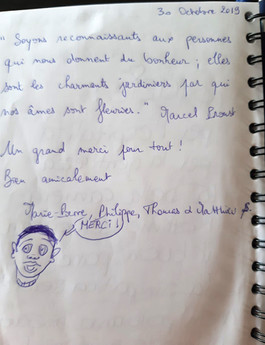 30 Octobre 2019
"Soyons reconnaissants aux personnes
qui nous donnent du bonheur ; elles
sont les charmants jardiniers par qui
nos âmes sont fleuries." Marcel Proust
Un grand merci pour tout !
Bien amicalement
Marie-Pierre, Philippe, Thomas et Matthieu
MERCI !